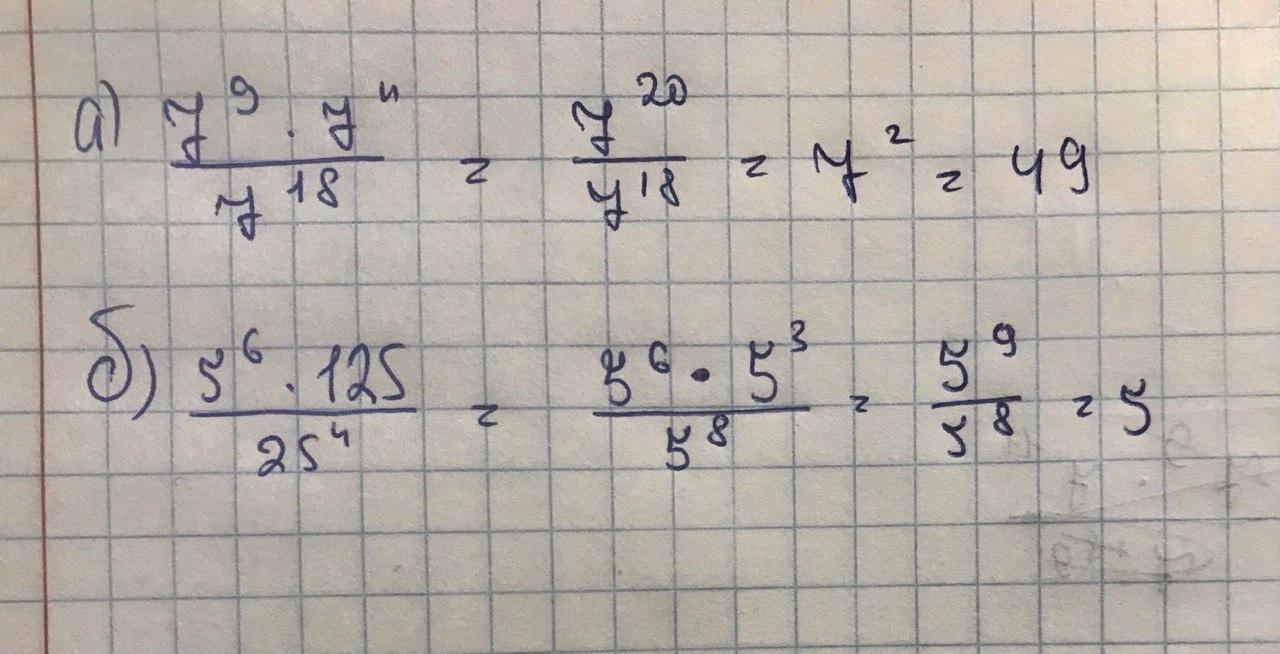 а) (7^9 · 7^11) / 7^18 = 7^20 / 7^18 = 7^2 = 49
б) (5^6 · 125) / 25^4 = (5^6 · 5^3) / 5^8 = 5^9 / 5^8 = 5